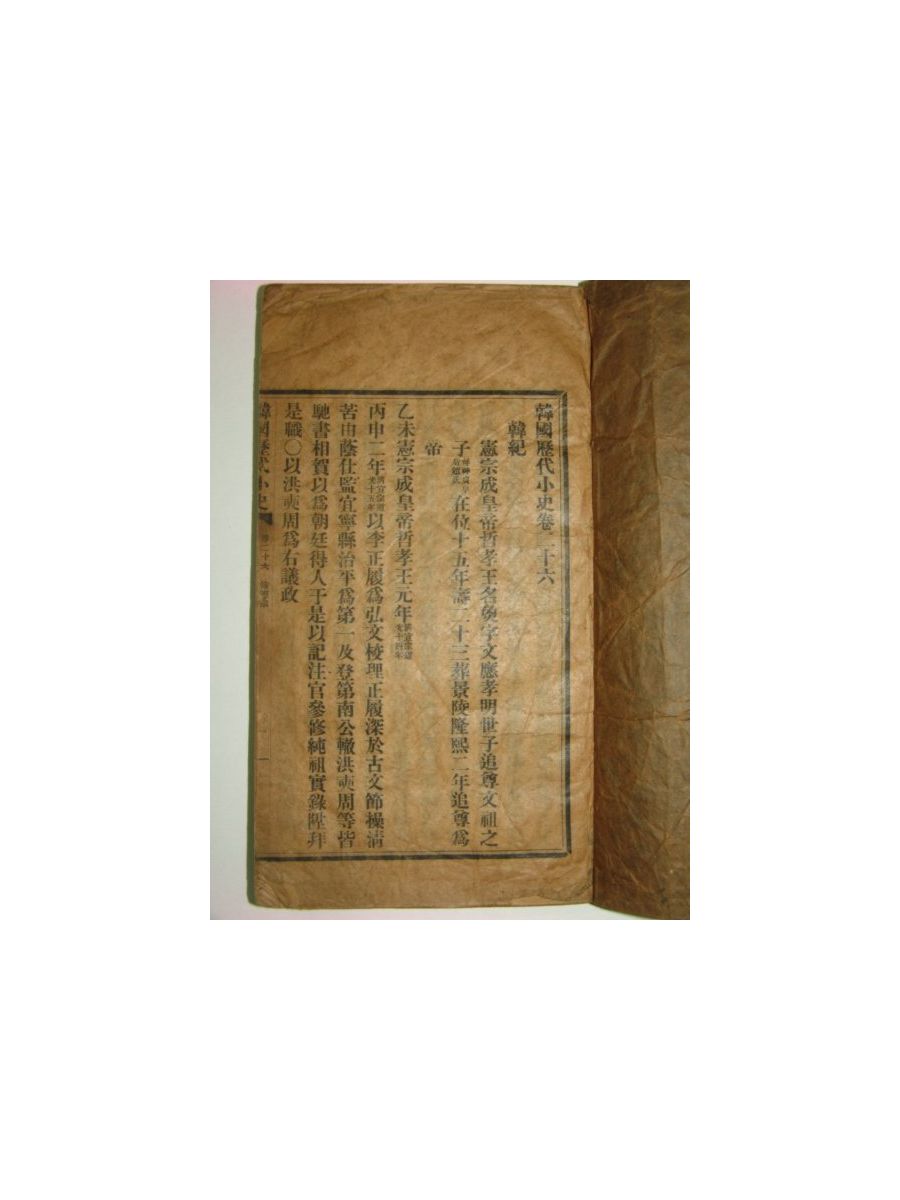 韓國歷代小史卷二十六
韓紀
憲宗成皇帝哲孝王名奐字文應孝明世子追尊文祖之
子在位十五年壽二十三葬景陵隆熙二年追尊爲
帝
乙未憲宗成皇帝哲孝王元年清宣宗道光十四年
丙申二年清宣宗道光十五年以李正履爲弘文校理正履深於古文節操清
苦由蔭仕監宜寧縣治平爲第一及登第南公轍洪奭周等皆
馳書相賀以爲朝廷得人于是以記注官參修純祖實錄陞拜
是職〇以洪奭周爲右議政
韓國歷代小史 卷二十六